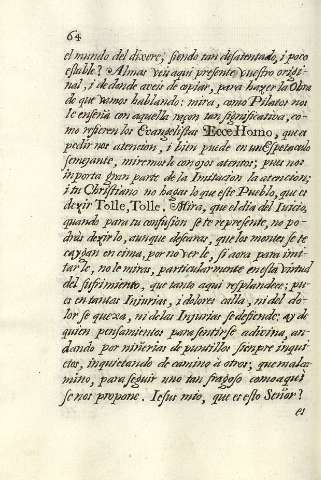 64
el mundo del dixere; siendo tan desatentado, i poco
estable? Almas veis aqui presente vuestro origi-
nal, i de donde aveis de copiar, para hazer la Obra
de que vamos hablando: mira, como Pilatos nos
le enseña con aquella razon tan significativa, co-
mo refieren los Evangelistas Ecce Homo, que a
pedir nos atencion, i bien puede en un Espetaculo
semejante, miremosle con ojos atentos; pues nos
inporta gran parte de la Imitacion la atencion;
i tu Christiano no hagas lo que este Pueblo, que es
dezir Tolle, Tolle. Mira, que el dia del Iuicio,
quando para tu confusion se te represente, no po-
dràs dezirlo, aunque desearas, que los montes se te
caygan en cima, por no verle, si aora para imi-
tarle, no le miras, particularmente en esta virtud
del sufrimiento, que tanto aqui resplandece; pu-
es en tantas Injurias, i dolores calla, ni del do-
lor se quexa, ni de las Injurias se defiende; ay de
quien pensamientos para sentirse adivina, an-
dando por niñerias de puntillos siempre inqui-
etos, inquietando de camino à otros; que mal ca-
mino, para seguir uno tan fragoso como aqui
se nos propone. Iesus mio, que es esto Señor?
es